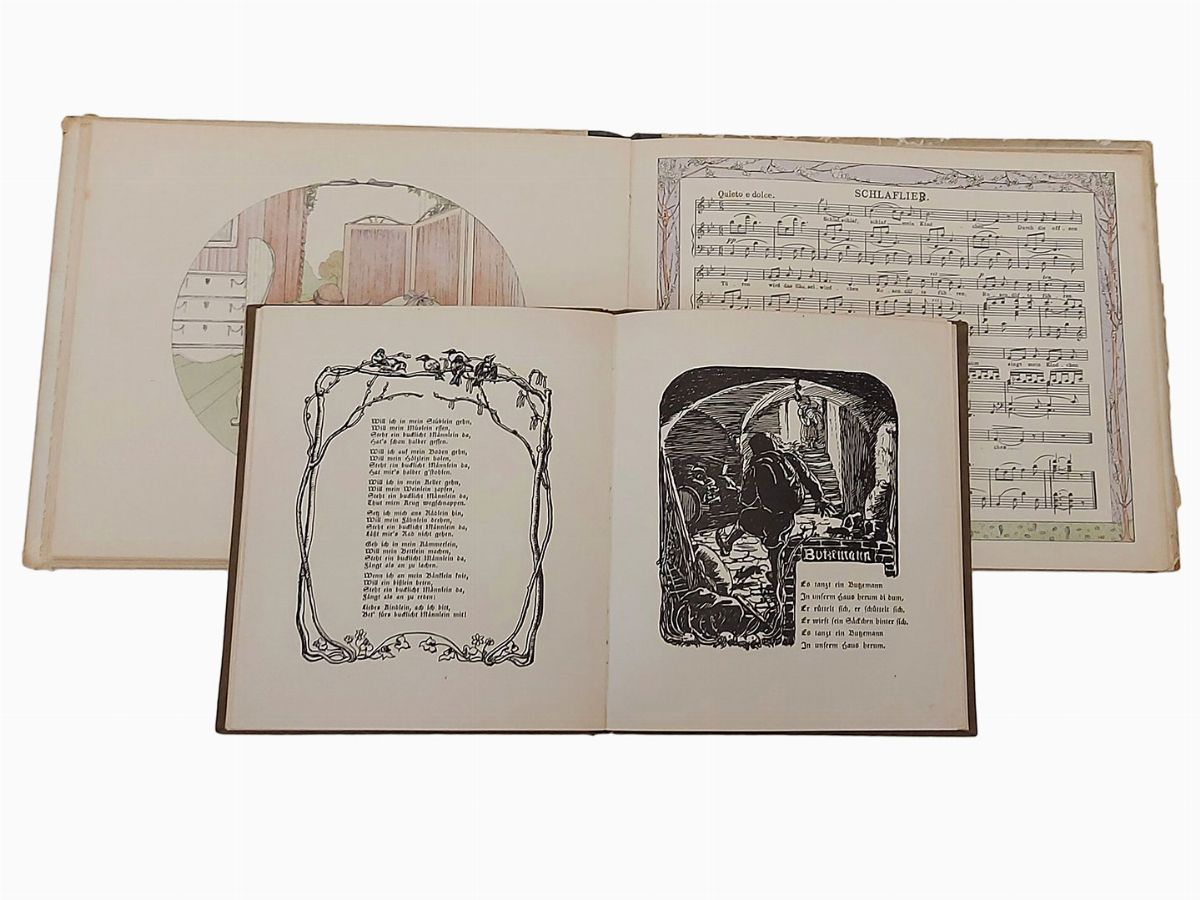 Quieto e dolce.
SCHLAFLIER.
Schlaf, schlaf mein Kind - chen, Durch die off - nen
Tü - ren wird das
ren,
singt mein Kind - chen
chen
Will ich in mein Stüblein gehn,
Will mein Müslein essen,
Steht ein bucklicht Männlein da,
Hat's schon halber gessen.
Will ich auf mein Boden gehn,
Will mein Hölzlein holen,
Steht ein bucklicht Männlein da,
Hat mir's halber g'stohlen.
Will ich in mein Keller gehn,
Will mein Weinlein zapfen,
Steht ein bucklicht Männlein da,
Thut mirn Krug wegschnappen.
Setz ich mich ans Rädlein hin,
Will mein Fädnlein drehen,
Steht ein bucklicht Männlein da,
Läßt mir's Rad nicht gehen.
Geh ich in mein Kämmerlein,
Will mein Bettlein machen,
Steht ein bucklicht Männlein da,
Fängt als an zu lachen.
Wenn ich an mein Bänklein knie,
Will ein bißlein beten,
Steht ein bucklicht Männlein da,
Fängt als an zu reden:
Liebes Kindlein, ach ich bitt,
Bet' fürs bucklicht Männlein mit!
Butzemann
Es tanzt ein Butzemann
In unserm Haus herum di dum,
Er rüttelt sich, er schüttelt sich,
Er wirft sein Säckchen hinter sich,
Es tanzt ein Butzemann
In unserm Haus herum.